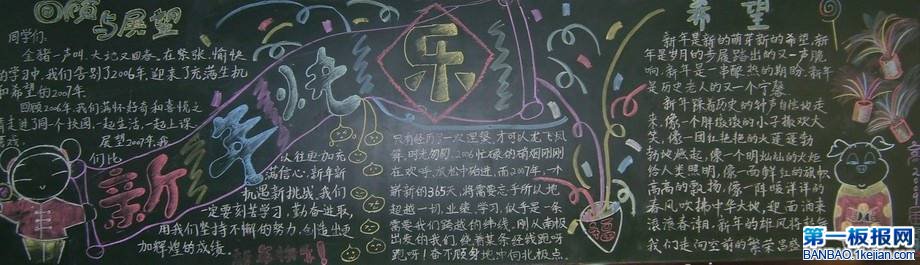 回顾与展望
同学们:
金猪一声叫,大地又回春。在紧张、愉快
的学习中,我们告别了2006年,迎来了充满生机
和希望的2007年。
回顾2006年,我们满怀好奇和喜悦之
情走进了同个校园,一起生活,一起上课
展望2007年,我
们比
以往更加充
满信心,新年新
机遇新挑战,我们
一定要刻苦学习,勤奋进取,
用我们坚持不懈的努力,创造出更
加辉煌的成绩。
新年快乐
只有经历了一次涅槃,才可以龙飞凤
舞,时光匆匆,2006忙碌的硝烟刚刚
在欢呼、放松中殆进,而2007年,一个
崭新的365天,将需要忘乎所以地
超越一切,业绩、学习,似乎是一条
需要我们跨越的纬线,刚从南极
出发的我们,绕着某条经线跑呀
跑呀!奋不顾身地冲向北极点。
福
希望
新年是新的萌芽新的希望,新
年是岁月的步履踏出的又一声脆
响,新年是一串酸热的期盼,新年
是历史老人的又一个宁馨
新年踩着历史的钟声自信地走
来,像一个胖墩墩的小子撒欢大
笑,像一团红艳艳的火蓬蓬勃
勃地燃起,像一个明灿灿的火炬
给人类照明,像一面鲜红的旗帜
高高的飘扬,像一阵暖洋洋的
春风吹拂中华大地,迎面洒来
滚滚春潮,新年的雄风将鼓舞
我们走向空前的繁荣昌盛
第一板报网
BANBAO.1kejian.com